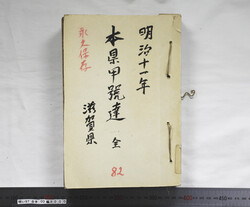 明治十一年
本県甲號達 全
滋賀県
永久保存
82